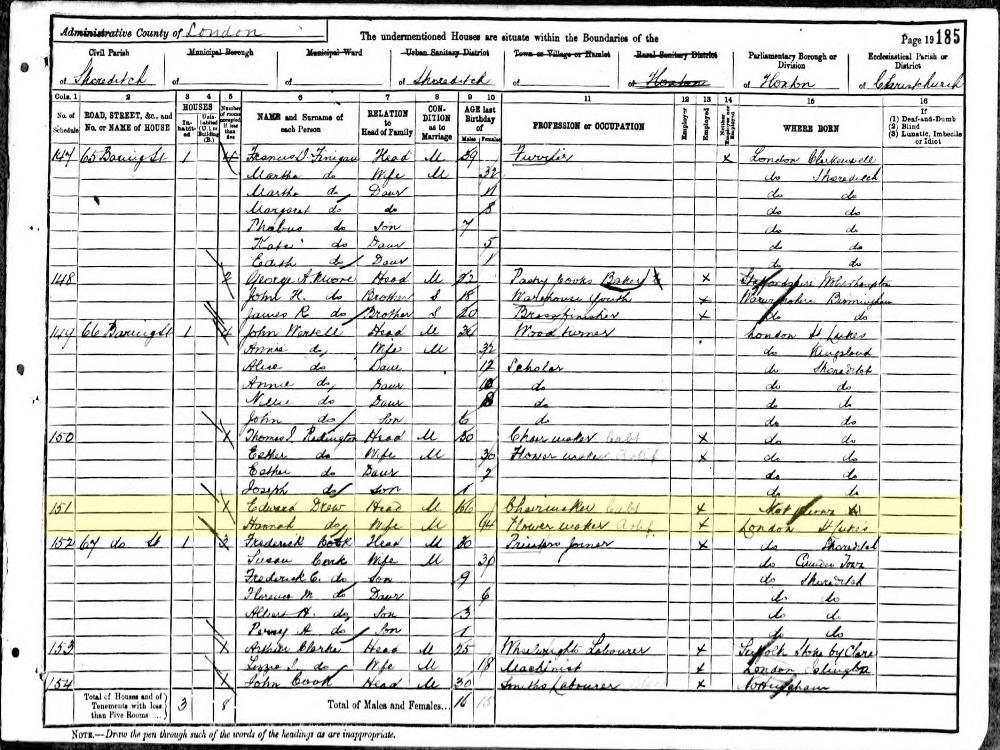 Administrative County of London
The undermentioned Houses are situate within the Boundaries of the
Page 19 185
Civil Parish
Municipal Borough
Municipal Ward
Urban Sanitary District
Town or Village or Hamlet
Rural Sanitary District
Parliamentary Borough or Division
Ecclesiastical Parish or District
of Shoreditch of of of Shoreditch of of Hoxton of Hoxton of Christchurch
Cols. 1 2 3 4 5 6 7 8 9 10 11 12 13 14 15 16
No. of Schedule
ROAD, STREET, &c., and No. or NAME of HOUSE
HOUSES
Inhabited
Uninhabited (U.) or Building (B.)
Number of rooms occupied if less than five
NAME and Surname of each Person
RELATION to Head of Family
CONDITION as to Marriage
AGE last Birthday of
Males Females
PROFESSION or OCCUPATION
Employer
Employed
Neither Employer nor Employed
WHERE BORN
If
(1) Deaf-and-Dumb
(2) Blind
(3) Lunatic, Imbecile or Idiot
147 65 Baring St 1 4 Francis D. Finigan Head M 39 Furrier x London Clerkenwell
Martha do Wife M 32 do Shoreditch
Martha do Daur 11 do do
Margaret do do 8 do do
Phobus do Son 7 do do
Kate do Daur 5 do do
Edith do Daur 1 do do
148 2 George A. Moore Head M 22 Pastry Cooks Baker x Staffordshire Wolverhampton
John H. do Brother S 18 Warehouse Youth x Warwickshire Birmingham
James R. do Brother S 20 Brassfinisher x do do
149 66 Baring St 1 4 John Head M 34 Wood turner London St Lukes
Annie do Wife M 32 do Kingsland
Alice do Daur 12 Scholar do Shoreditch
Annie do Daur 10 do do do
Nellie do Daur 8 do do do
John do Son 6 do do
150 Thomas J. Redington Head M 30 Chair maker Cabt x do do
Esther do Wife M 30 Flower maker Artif x do do
Esther do Daur 2 do do
Joseph do Son 1 do do
151 Edward Drew Head M 66 Chairmaker Cabt x Not known
Hannah do Wife M 44 Flower maker Artif x London St Lukes
152 67 do St 1 3 Frederick Cook Head M 30 Joiner x do Shoreditch
Susan Cook Wife M 30 do Camden Town
Frederick C. do Son 9 do Shoreditch
Florence M. do Daur 6 do do
Albert H. do Son 3 do do
Percy A. do Son 1 do do
153 1 Arthur Clarke Head M 25 Wheelwrights Labourer x Suffolk Stoke by Clare
Lizzie J. do Wife M 18 Machinist x London Islington
154 1 John Cook Head M 30 Smiths Labourer x Nottingham
Total of Houses and of Tenements with less than Five Rooms ... 3 8
Total of Males and Females... 16 15
NOTE.—Draw the pen through such of the words of the headings as are inappropriate.